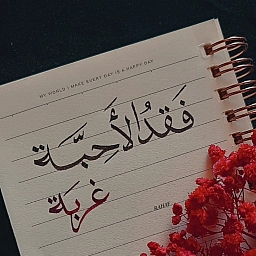 MY WORLD I MAKE EVERY DAY IS A HAPPY DAY
فَقدُ الأَحِبَّة
غربَة
RAHAF